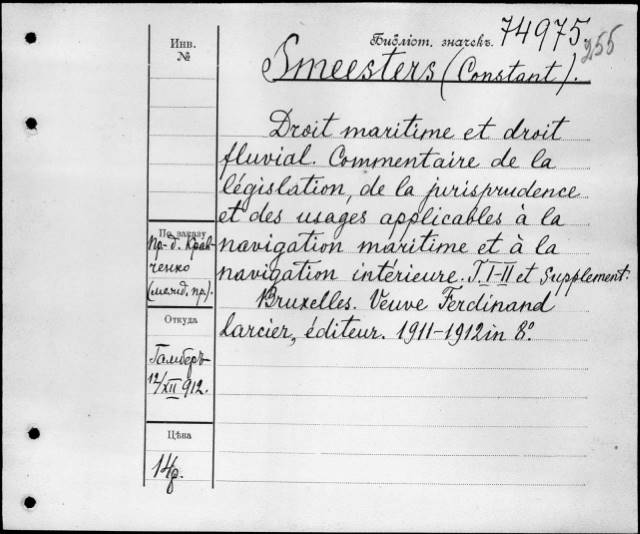 Инв.
№
Библіот. значекъ.
74975
255
Smeesters (Constant).
Droit maritime et droit
fluvial. Commentaire de la
législation, de la jurisprudence
et des usages applicables à la
navigation maritime et à la
navigation intérieure. T I-II et Supplement.
Bruxelles. Veuve Ferdinand
Larcier, éditeur. 1911-1912 in 8º.
По заказу
Пр-д. Крав-
ченко
Откуда
Гамберъ
12/XII 912.
Цѣна
14р.